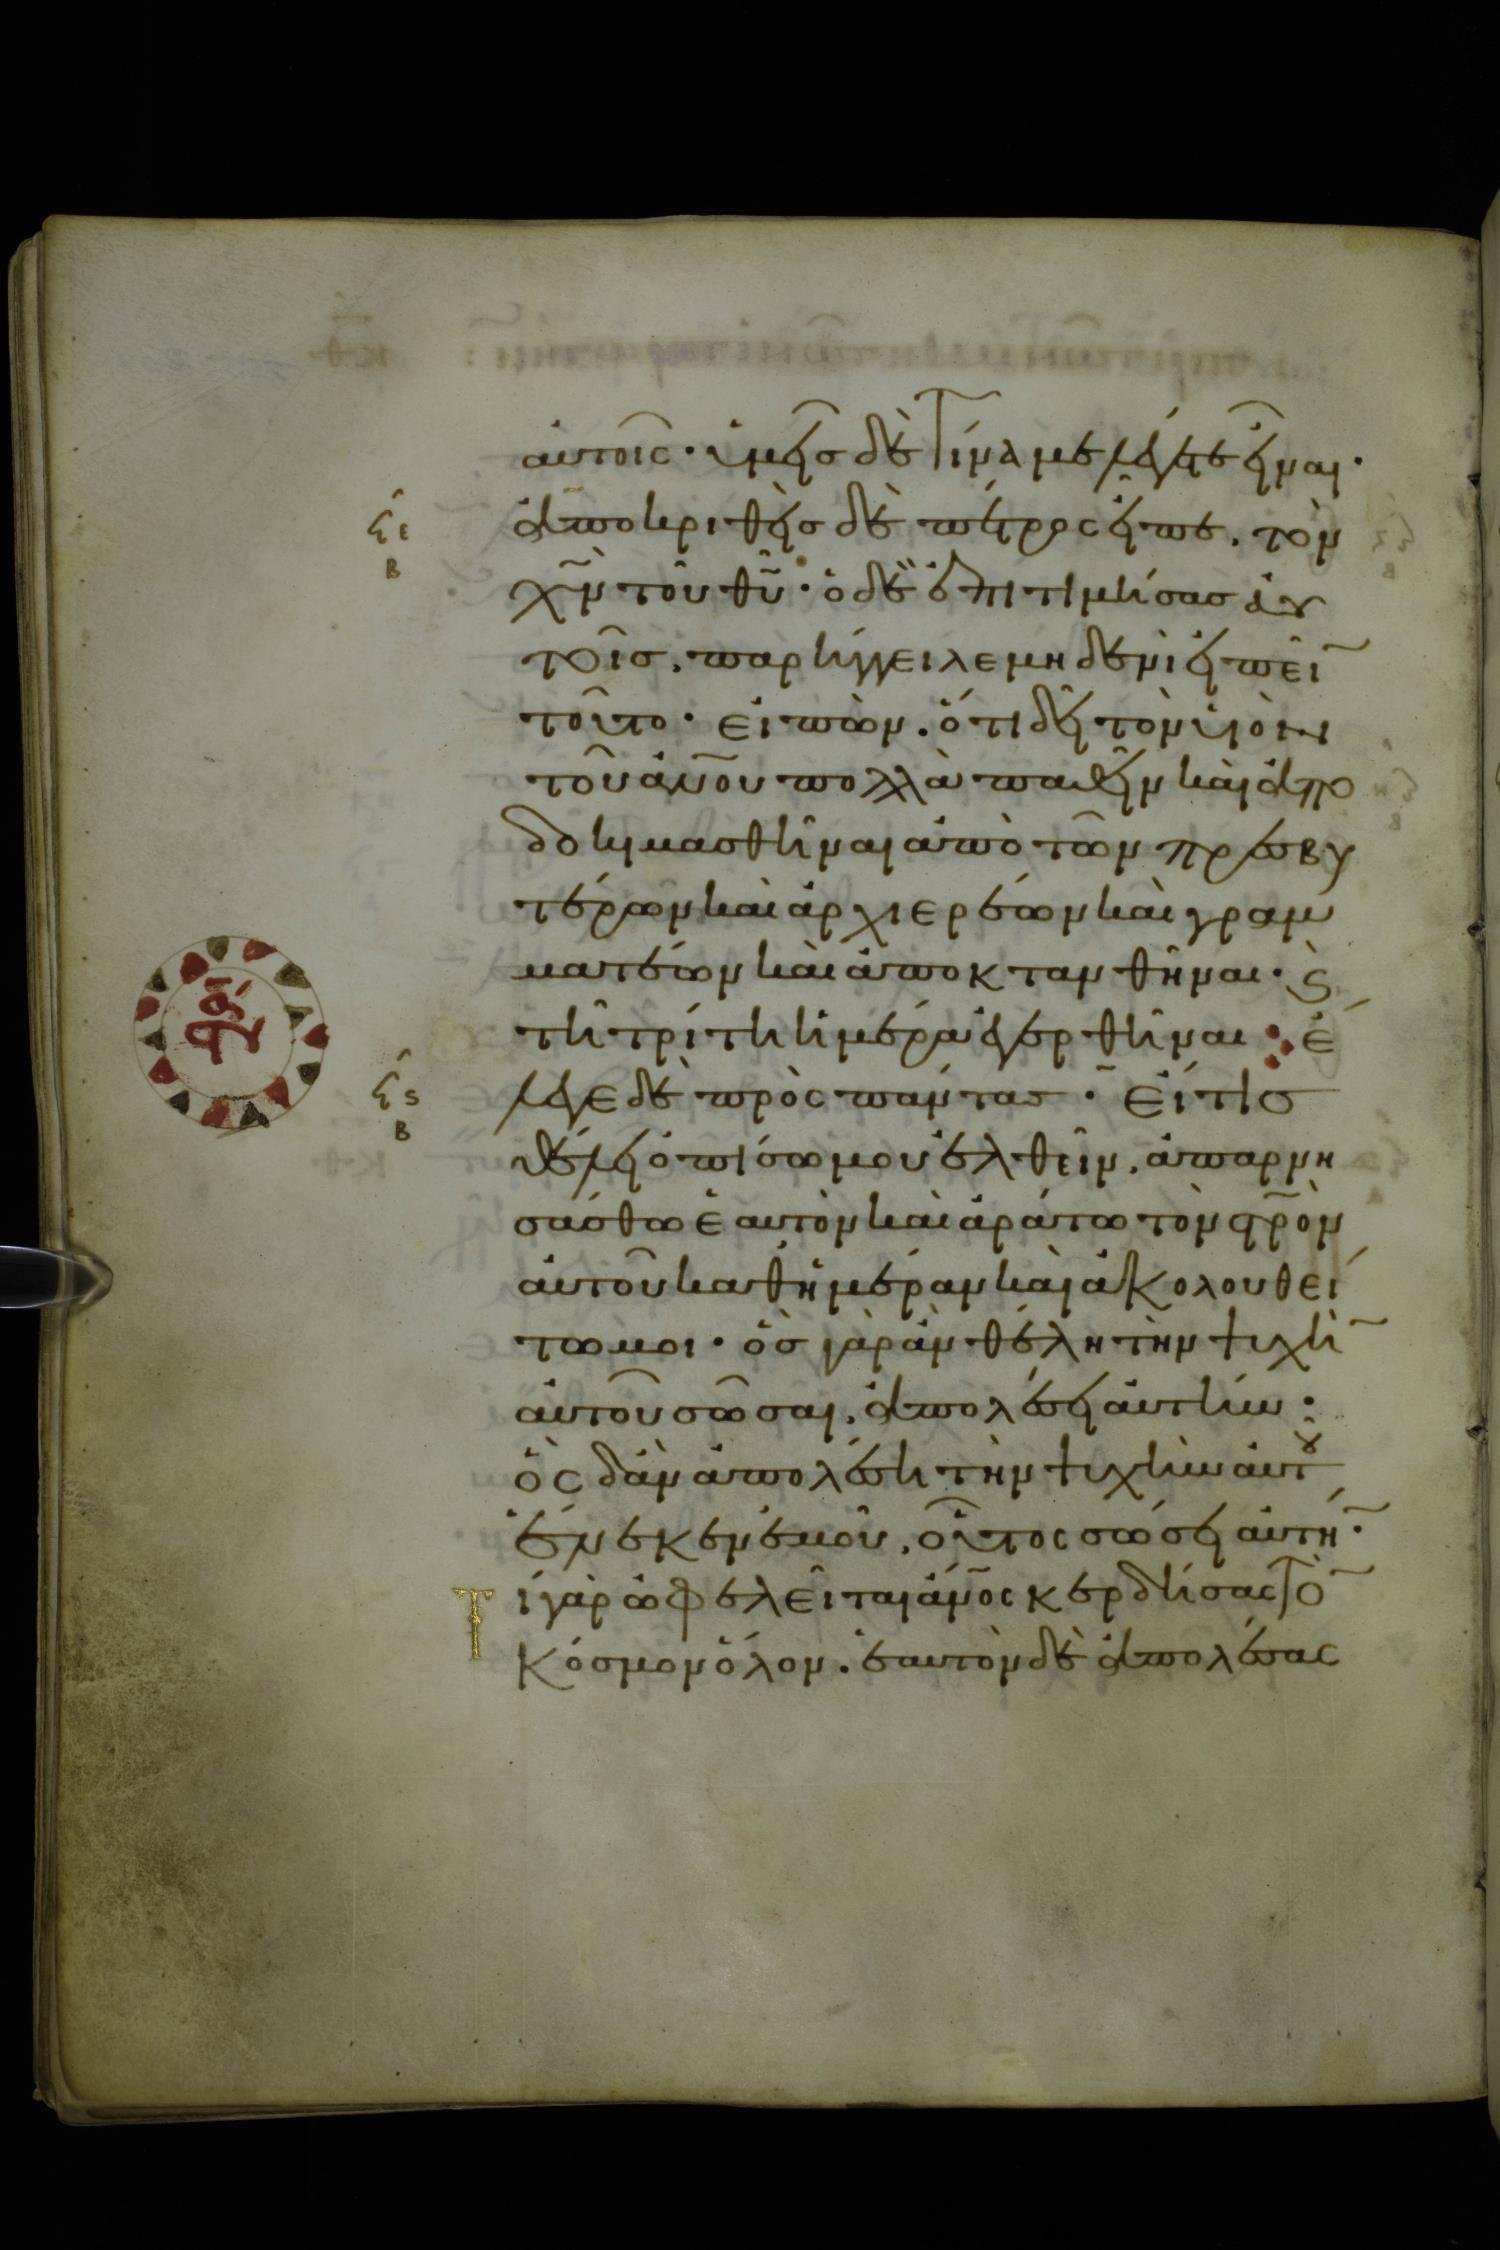 αὐτοῖς· ὑμεῖς δὲ τίνα με λέγετε εἶναι·
ϟε
β
ἀποκριθεὶς δὲ πέτρος εἶπε. τὸν
χν̄ τοῦ θῡ· ὁ δὲ ἐπιτιμήσας αὐ
τοῖς, παρήγγειλε μηδενὶ εἰπεῖ
τοῦτο· εἰπὼν. ὅτι δεῖ τὸν υἱὸν
τοῦ ἀνου πολλὰ παθεῖν καὶ ἀπο
δοκιμασθῆναι ἀπὸ τῶν πρεσβυ
τέρων καὶ ἀρχιερέων καὶ γραμ
ματέων καὶ ἀποκτανθῆναι· ϛ
τῆ τρίτη ἡμέρα ἐγερθῆναι : ἔ
ϟϛ
β
λεγε δὲ πρὸς πάντας· εἴ τις
θέλει ὀπίσω μου ἐλθεῖν, ἀπαρνη
σάσθω ἑαυτὸν καὶ ἀράτω τὸν στρὸν
αὐτοῦ καθημέραν καὶ ἀκολουθεί
τω μοι· ὃς γὰρ ἂν θέλη τὴν ψυχὴ
αὐτοῦ σῶσαι, ἀπολέσει αὐτήν·
ὃς δἂν ἀπολέση τὴν ψυχὴν αὐτου
ἕνεκεν ἐμοῦ, οὗτος σώσει αὐτή·
Τί γὰρ ὠφελεῖται ἄνος κερδήσας τὸ
κόσμον ὅλον. ἑαυτὸν δὲ ἀπολέσας